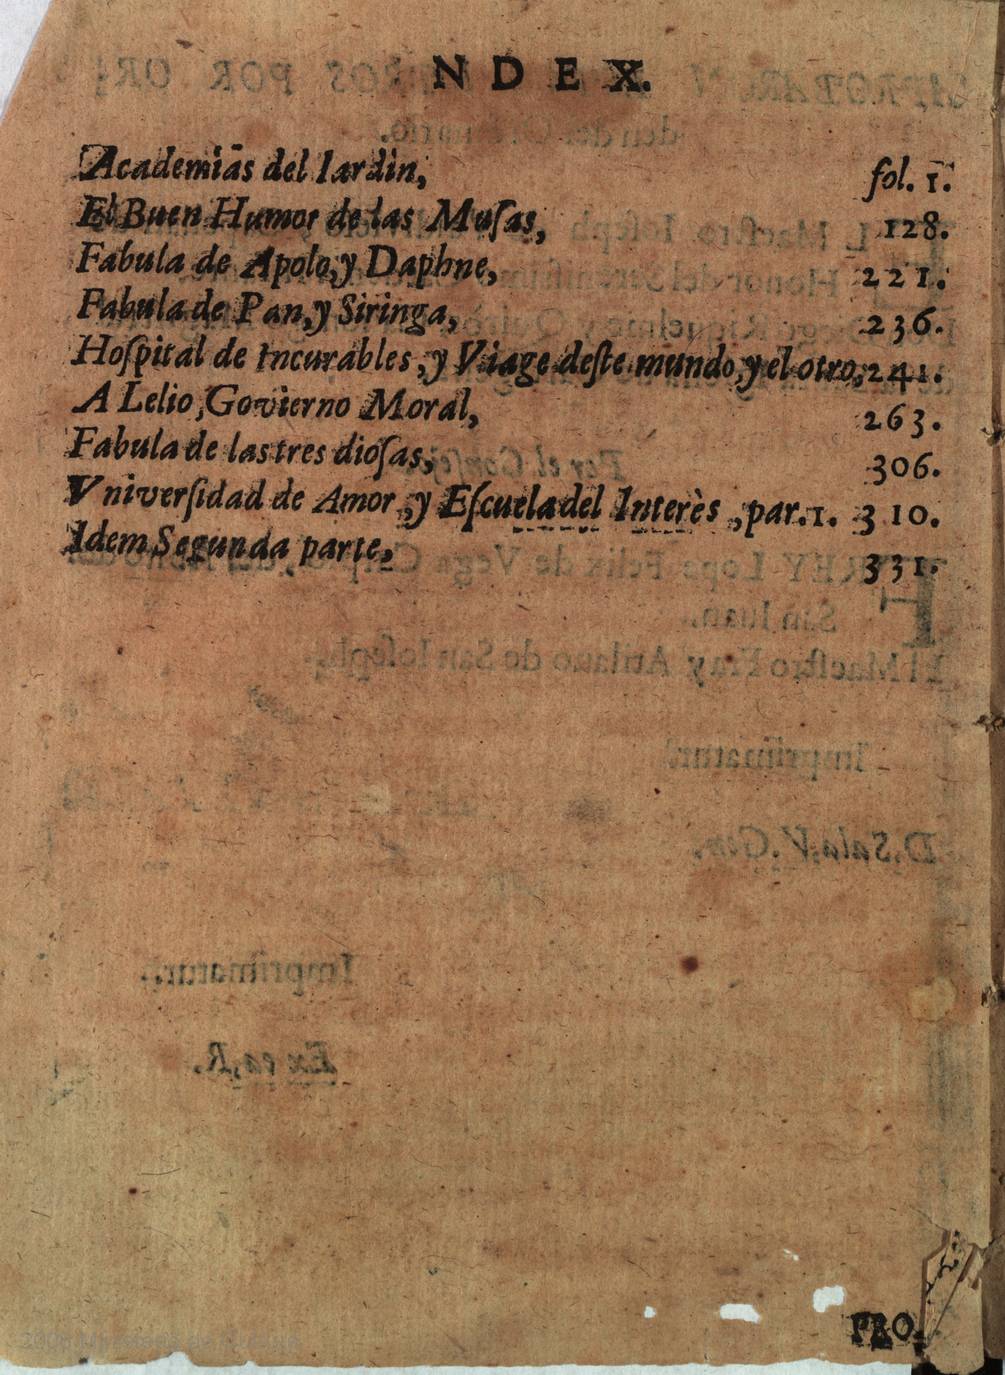 NDEX.
Academias del Iardin, fol. 1.
El Buen Humor de las Muſas, 128.
Fabula de Apolo,y Daphne, 221.
Fabula de Pan,y Siringa, 236.
Hoſpital de Incurables ,y Viage deſte mundo,y el otro,241.
A Lelio,Govierno Moral, 263.
Fabula de las tres dioſas, 306.
Vniverſidad de Amor ,y Eſcuela del Interès ,par.1. 310.
Idem,Segunda parte, 331.
PRO.